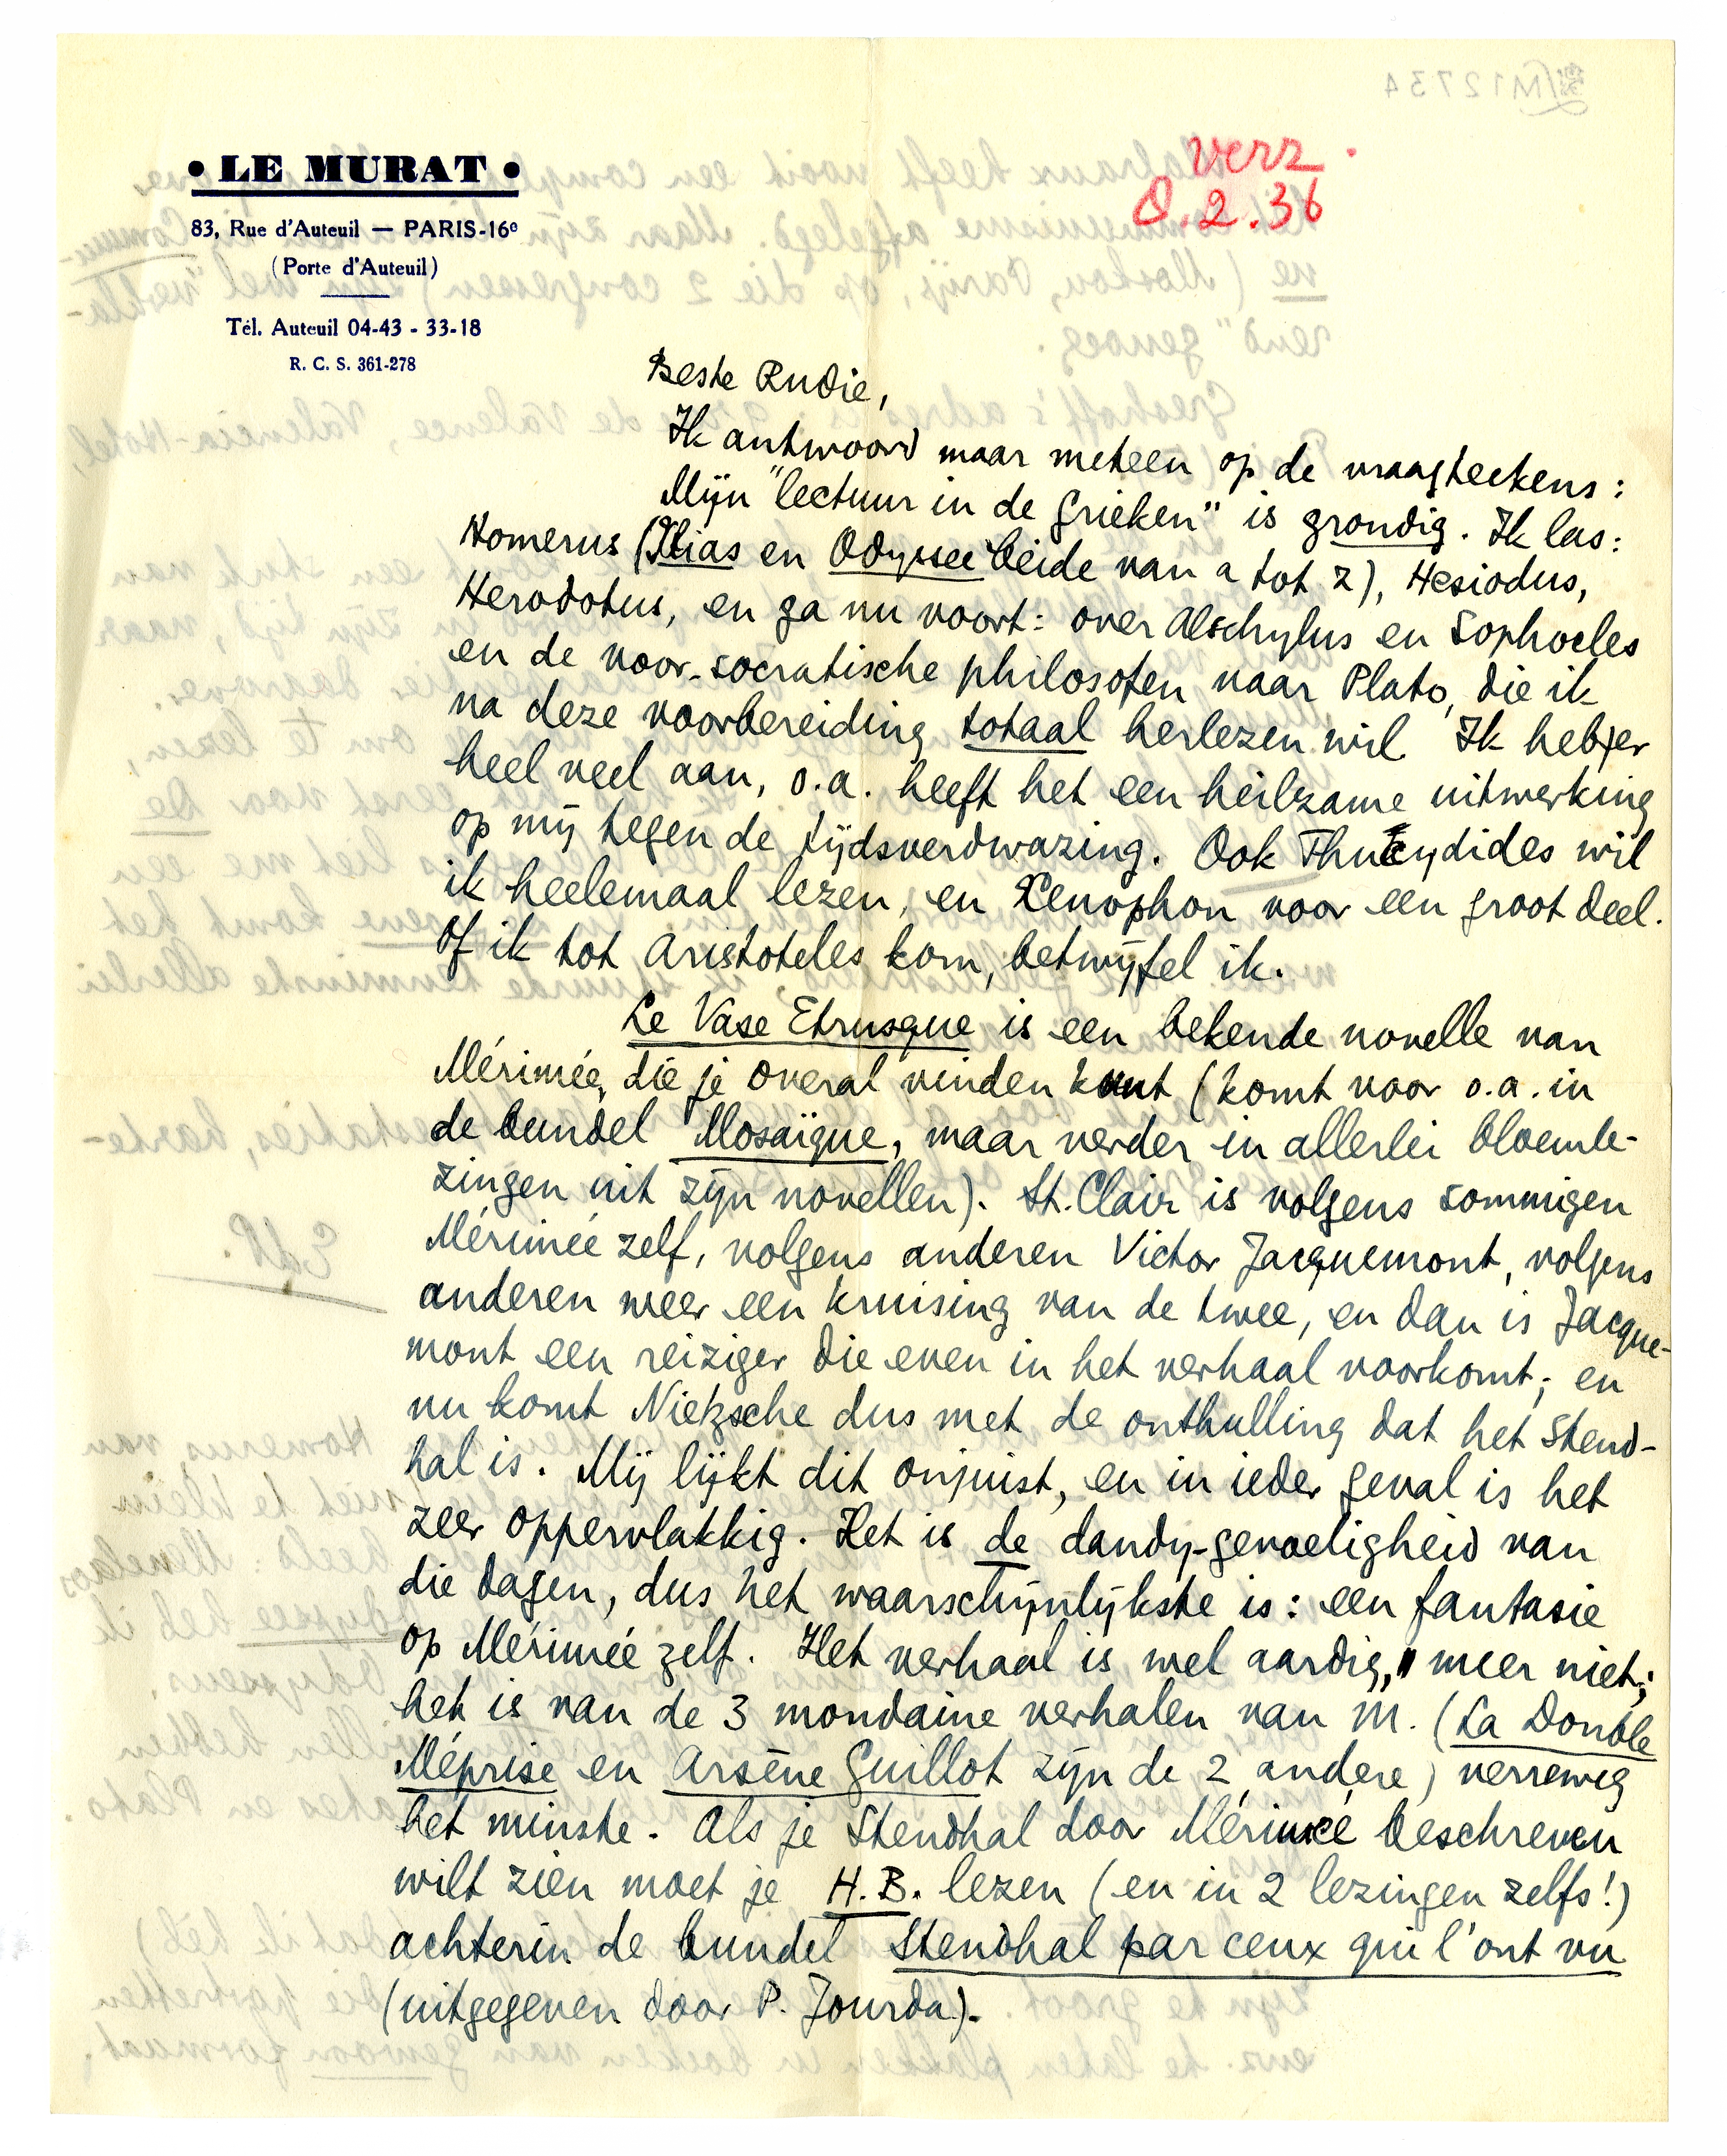 • LE MURAT •
83, Rue d'Auteuil — PARIS-16e
(Porte d'Auteuil)
Tél. Auteuil 04-43 - 33-18
R. C. S. 361-278
M12734
verz.
8.2.36
Beste Rudie,
Ik antwoord maar meteen op de vraagteekens:
Mijn "lectuur in de Grieken" is grondig. Ik las:
Homerus (Ilias en Odyssee beide van a tot z), Hesiodus,
Herodotus, en ga nu voort: over Aeschylus en Sophocles
en de voor-socratische philosofen naar Plato, die ik
na deze voorbereiding totaal herlezen wil. Ik heb er
heel veel aan, o.a. heeft het een heilzame uitwerking
op mij tegen de tijdsverdwazing. Ook Thucydides wil
ik heelemaal lezen, en Xenophon voor een groot deel.
Of ik tot Aristoteles kom, betwijfel ik.
Le Vase Etrusque is een bekende novelle van
Mérimée, die je overal vinden kunt (komt voor o.a. in
de bundel Mosaïque, maar verder in allerlei bloemle-
zingen uit zijn novellen). St. Clair is volgens sommigen
Mérimée zelf, volgens anderen Victor Jacquemont, volgens
anderen weer een kruising van de twee, en dan is Jacque-
mont een reiziger die even in het verhaal voorkomt; en
nu komt Nietzsche dus met de onthulling dat het Stend-
hal is. Mij lijkt dit onjuist, en in ieder geval is het
zeer oppervlakkig. Het is de dandy-gevoeligheid van
die dagen, dus het waarschijnlijkste is: een fantasie
op Mérimée zelf. Het verhaal is wel aardig, meer niet;
het is van de 3 mondaine verhalen van M. (La Double
Méprise en Arsène Guillot zijn de 2 andere) verreweg
het minste. Als je Stendhal door Mérimée beschreven
wilt zien moet je H.B. lezen (en in 2 lezingen zelfs!)
achterin de bundel Stendhal par ceux qui l'ont vu
(uitgegeven door P. Jourda).